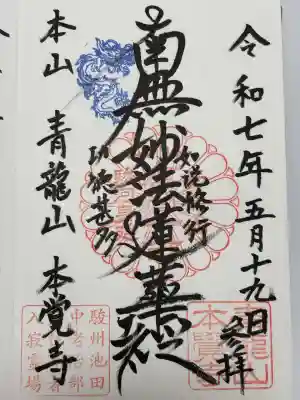 令和七年五月十九日
参拝
如説修行
南無妙法蓮華経
功徳甚多
本山 青龍山 本覚寺
駿州池田
中老治部
入寂霊場